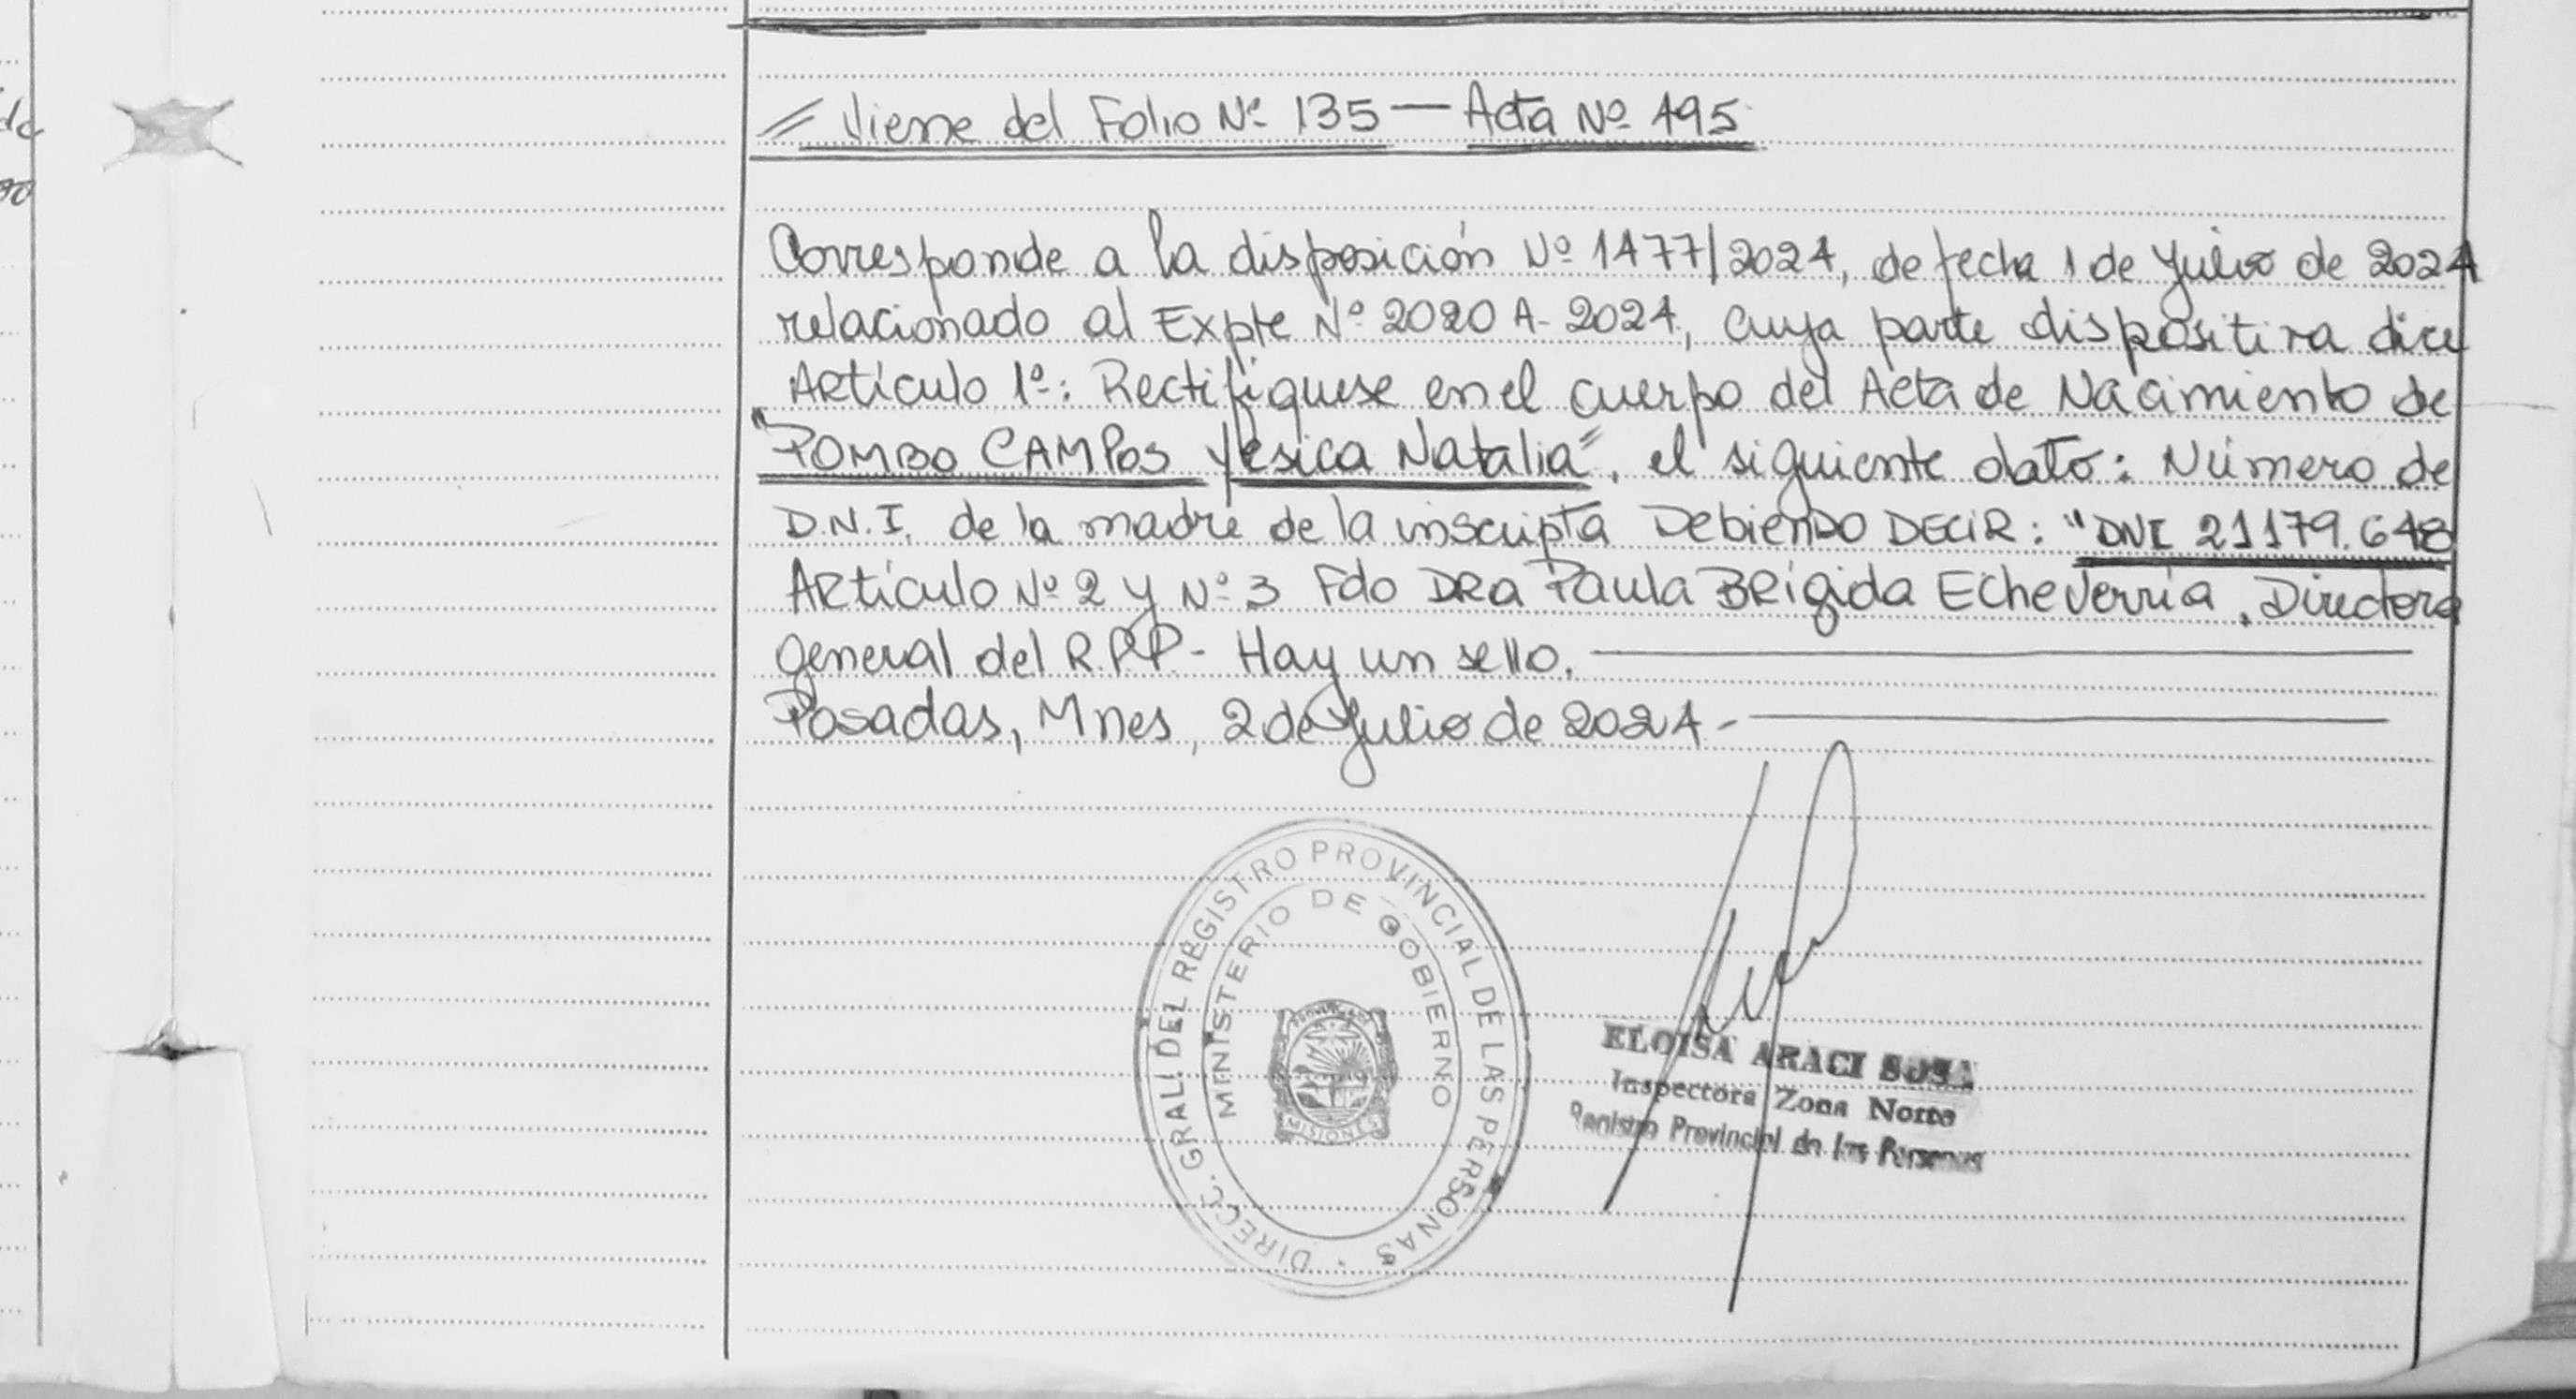 da
// Viene del Folio Nº 135 — Acta Nº 495
Corresponde a la disposición Nº 1477/2024, de fecha 1 de Julio de 2024
relacionado al Expte Nº 2020 A-2024, cuya parte dispositiva dice
Artículo 1º: Rectifiquese en el cuerpo del Acta de Nacimiento de
"POMBO CAMPOS Yesica Natalia", el siguiente dato: Número de
D.N.I. de la madre de la inscripta Debiendo DECIR: "DNI 21179.648
Artículo Nº 2 y Nº 3 Fdo DRa Paula BRígida Echeverría, Directora
general del R.P.P.- Hay un sello.
Posadas, Mnes, 2 de Julio de 2024-
DIRECC. GRAL. DEL REGISTRO PROVINCIAL DE LAS PERSONAS
MINISTERIO DE GOBIERNO
MISIONES
ELOISA ARACI SOSA
Inspectora Zona Norte
Registro Provincial de las Personas